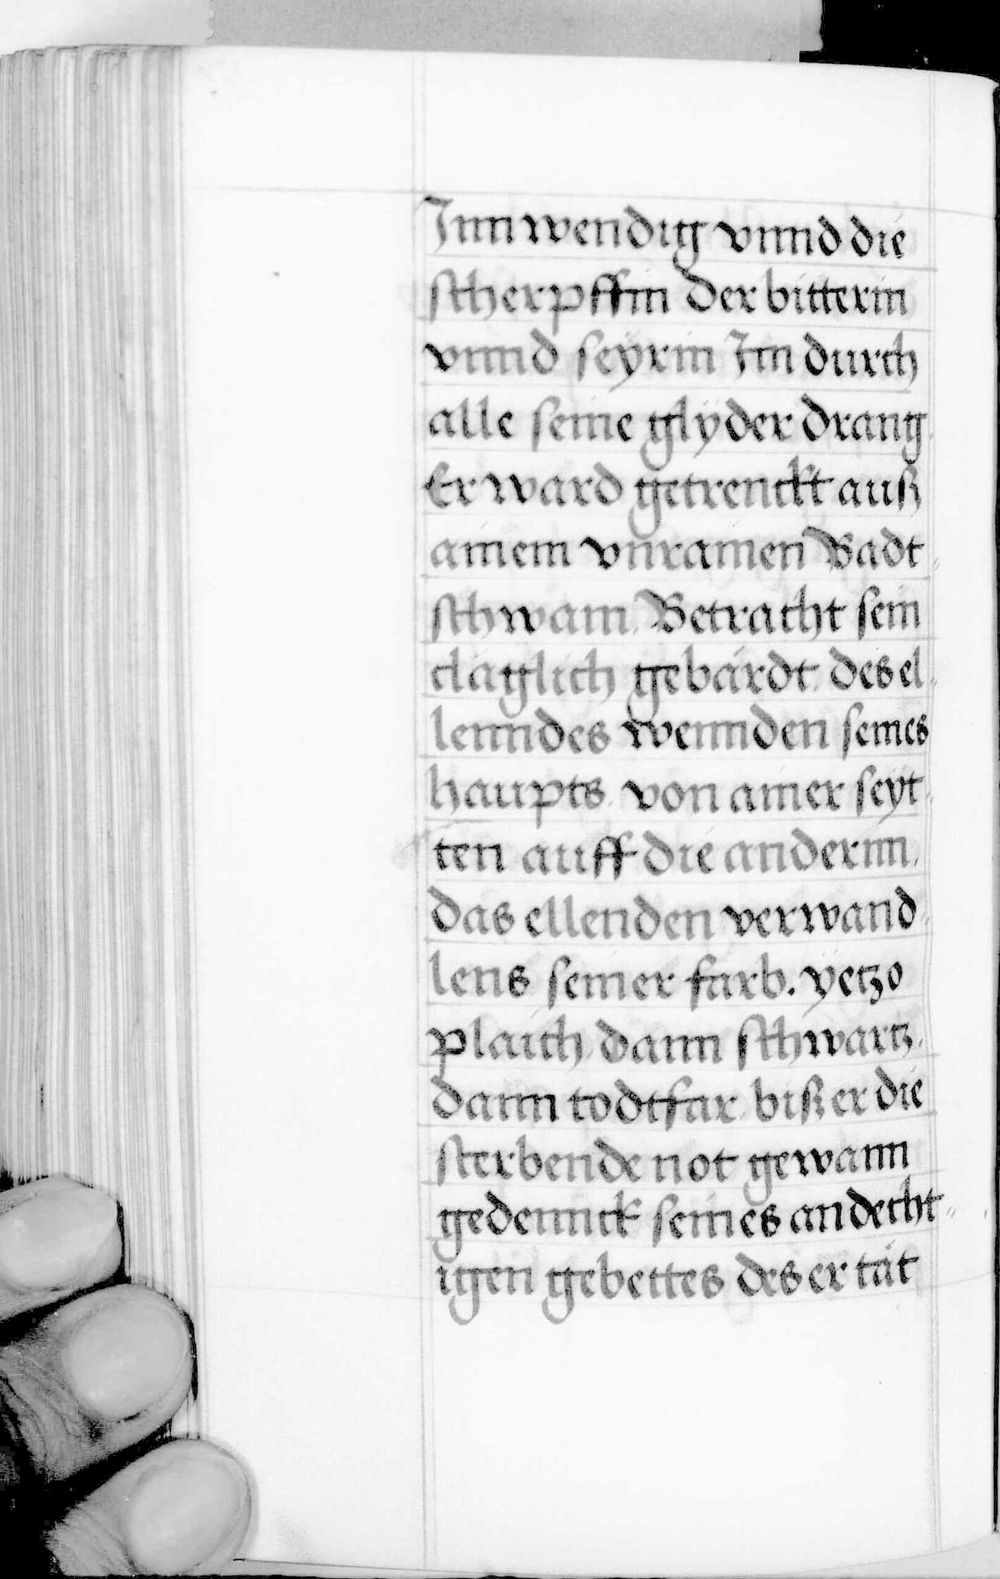 Jnnwendig vnnd die
scherpffin der bitterin
vnnd seyrin Jm durch
alle seine glyder drang
Er ward getrenckt auß
ainem vnrainen Badt
schwam. Betracht sein
claglich gebärdt. des el„
lenndes wennden seines
haupts von ainer seyt
ten auff die anderinn.
das ellenden verwand
lens seiner farb. yetzo
plaich dann schwartz.
dann todtfar biß er die
sterbende not gewann
gedennck seines andecht„
igen gebettes des er tät